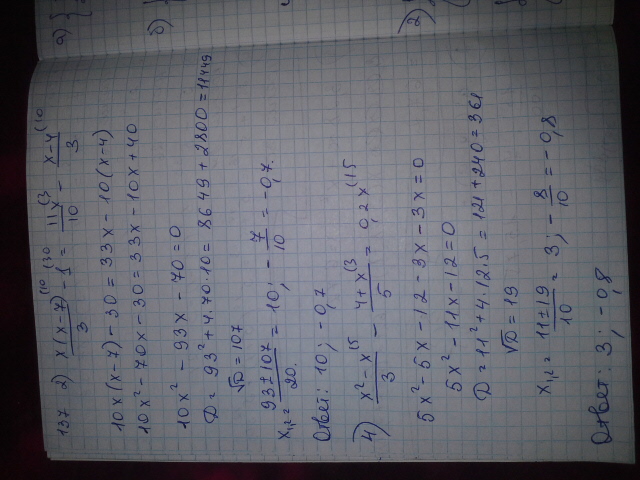 137 2) x(x-7)/3 (10 - 1 (30 = 11x/10 (3 - x-4/3 (10
10x(x-7)-30=33x-10(x-4)
10x²-70x-30=33x-10x+40
10x²-93x-70=0
D=93²+4.70.10=8649+2800=11449
√D=107
x₁,₂= 93±107/20 = 10; -7/10=-0,7.
Ответ: 10; -0,7
4) x²-x/3 (5 - 4+x/5 (3 = 0,2x (15
5x²-5x-12-3x-3x=0
5x²-11x-12=0
D=11²+4.12.5=121+240=361
√D=19
x₁,₂= 11±19/10 = 3; -8/10=-0,8
Ответ: 3; -0,8
а) {
б) {
2) {